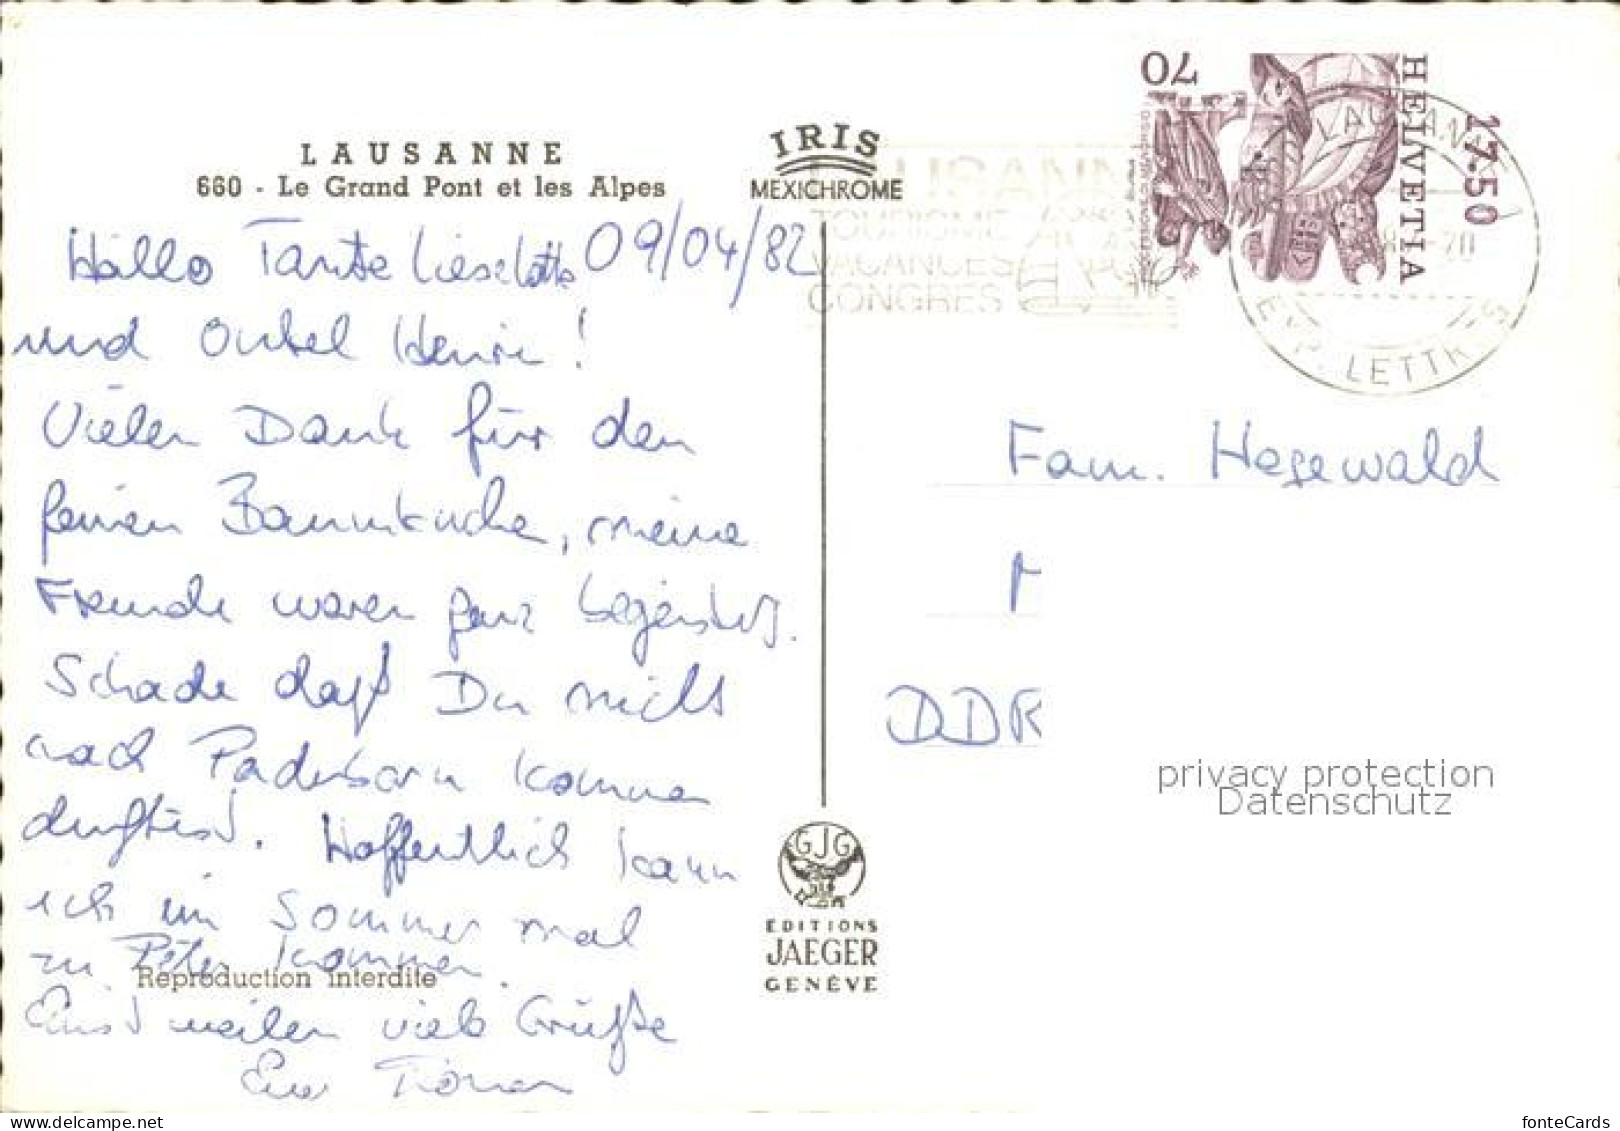 LAUSANNE
660 - Le Grand Pont et les Alpes
IRIS
MEXICHROME
Hallo Tante Lieselotte 09/04/82
und Onkel Henri!
Vielen Dank für den
feinen Baumkuchen, meine
Freunde waren ganz begeistert.
Schade daß Du nicht
nach Paderborn kommen
durftest. Hoffentlich kann
ich im Sommer mal
zu Peter kommen.
Reproduction interdite
Einstweilen viele Grüße
Euer
EDITIONS
JAEGER
GENÈVE
GJG
TOURISME
VACANCES
CONGRES
70
HELVETIA
17.50
LAUSANNE
EXP. LETTRES
Fam. Hegewald
DDR
privacy protection
Datenschutz
fonteCards